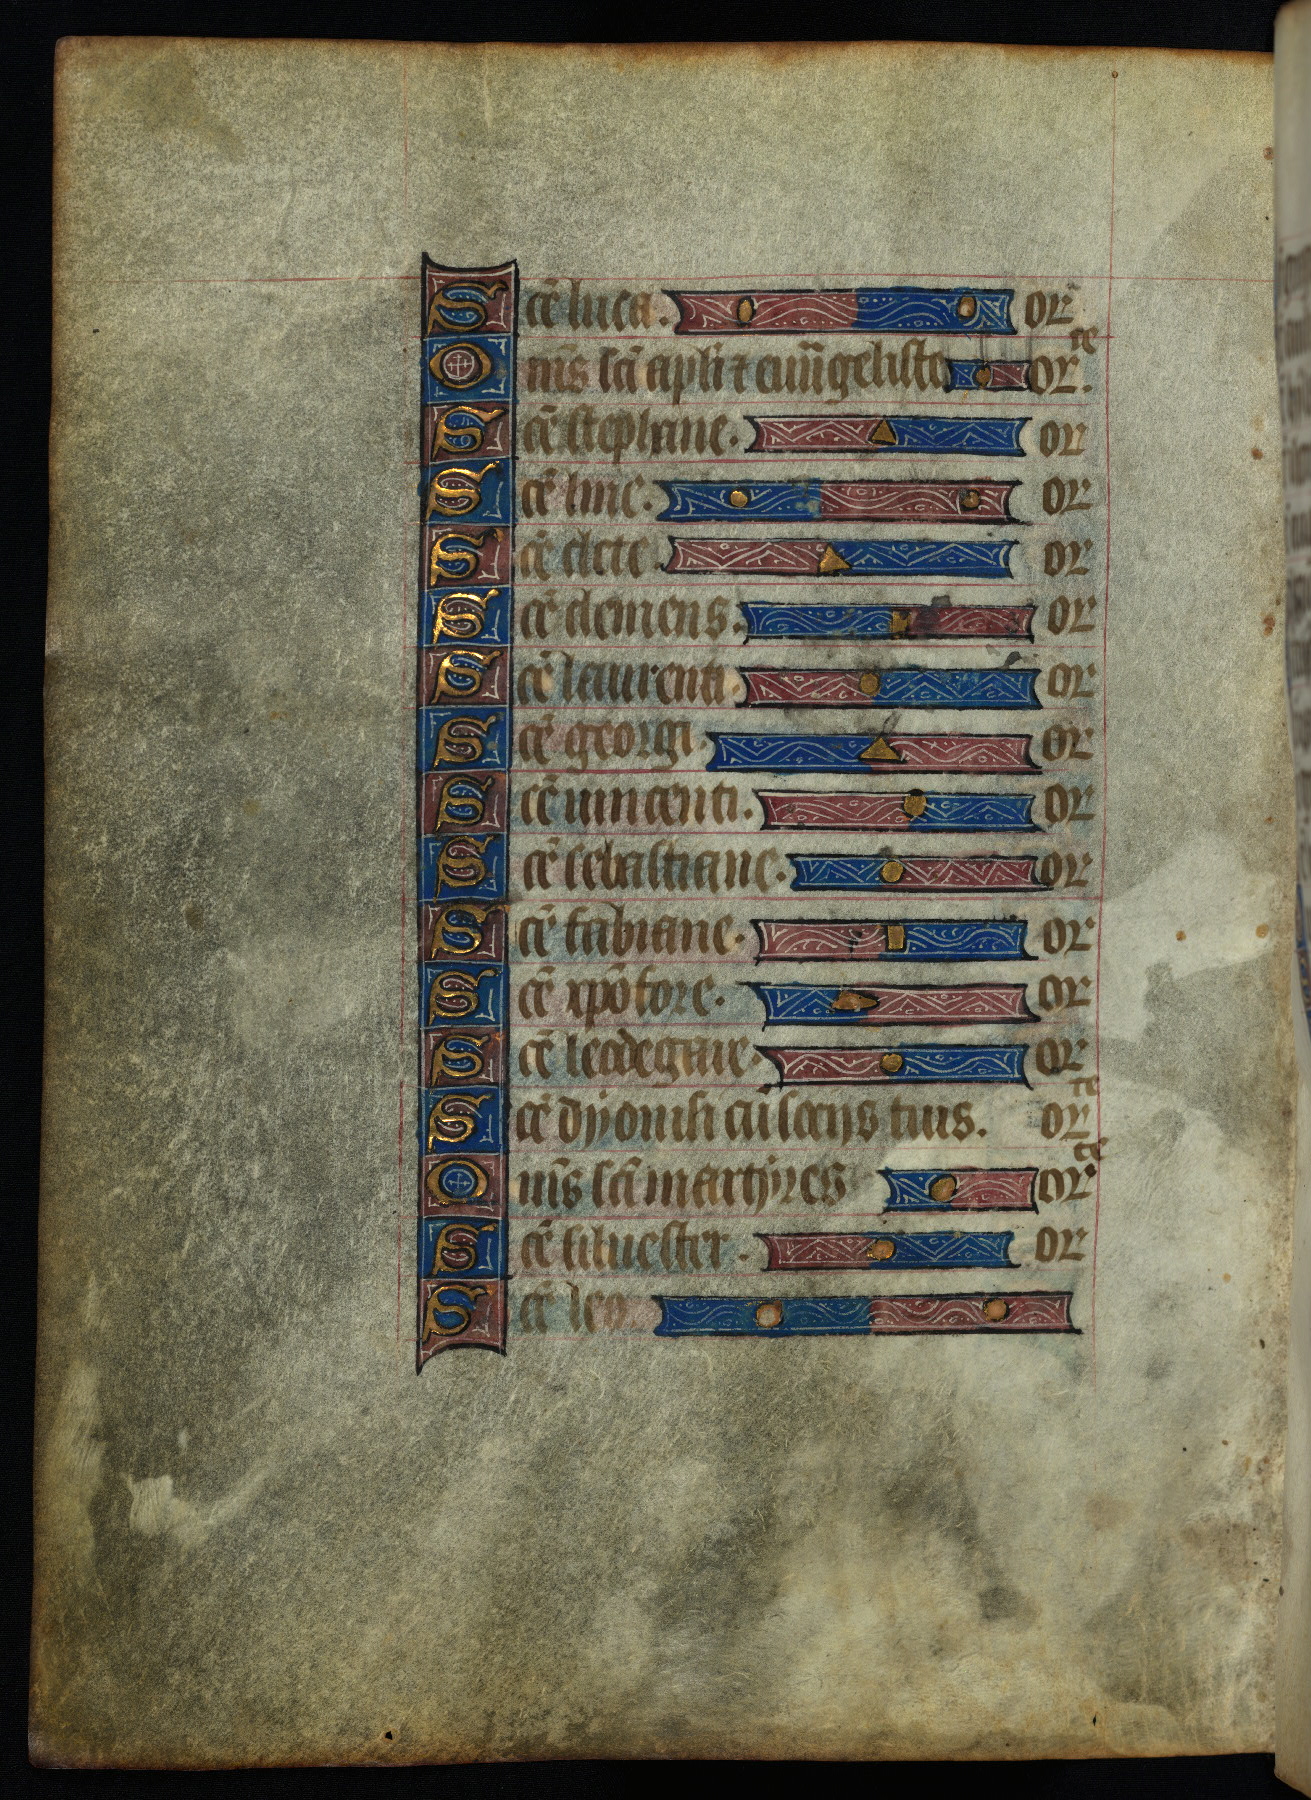 Sc̄e luca. or̄
Om̄s sc̄i apl̓i ⁊ euu̅geliste orte.
Sc̄e stephane. or
Sc̄e line. or
Sc̄e clete. or
Sc̄e clemens. or
Sc̄e laurenti. or
Sc̄e georgi. or
Sc̄e uincenti. or
Sc̄e sebastiane. or
Sc̄e fabiane. or
Sc̄e xp̄ofore. or
Sc̄e leodegarie. or
Sc̄e dyonisi cū socijs tuis. orte
Om̄s sc̄i martyres orte
Sc̄e siluester. or
Sc̄e leo.